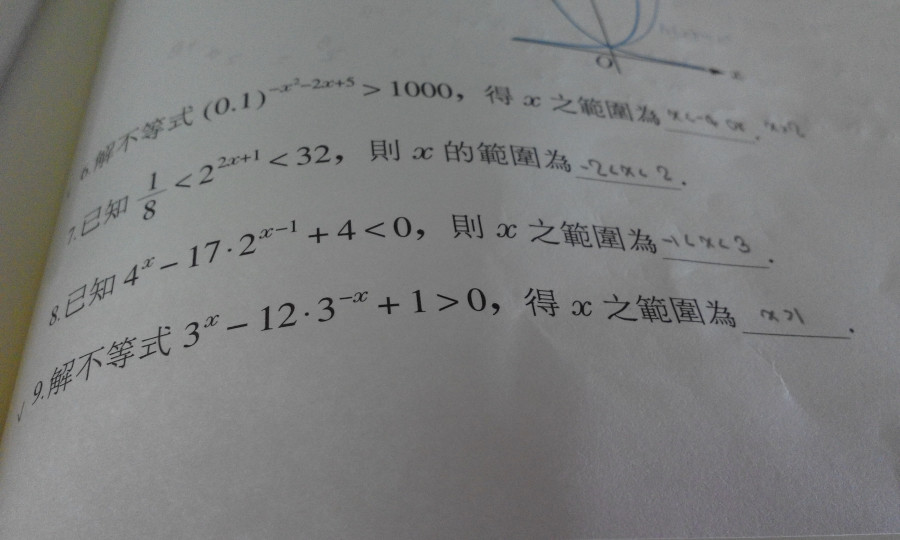 O x
6.解不等式 (0.1)^{-x²-2x+5} > 1000，得 x 之範圍為 x<-4 or x>2.
7.已知 1/8 < 2^{2x+1} < 32，則 x 的範圍為 -2<x<2.
8.已知 4^x - 17·2^{x-1} + 4 < 0，則 x 之範圍為 -1<x<3.
9.解不等式 3^x - 12·3^{-x} + 1 > 0，得 x 之範圍為 x>1.